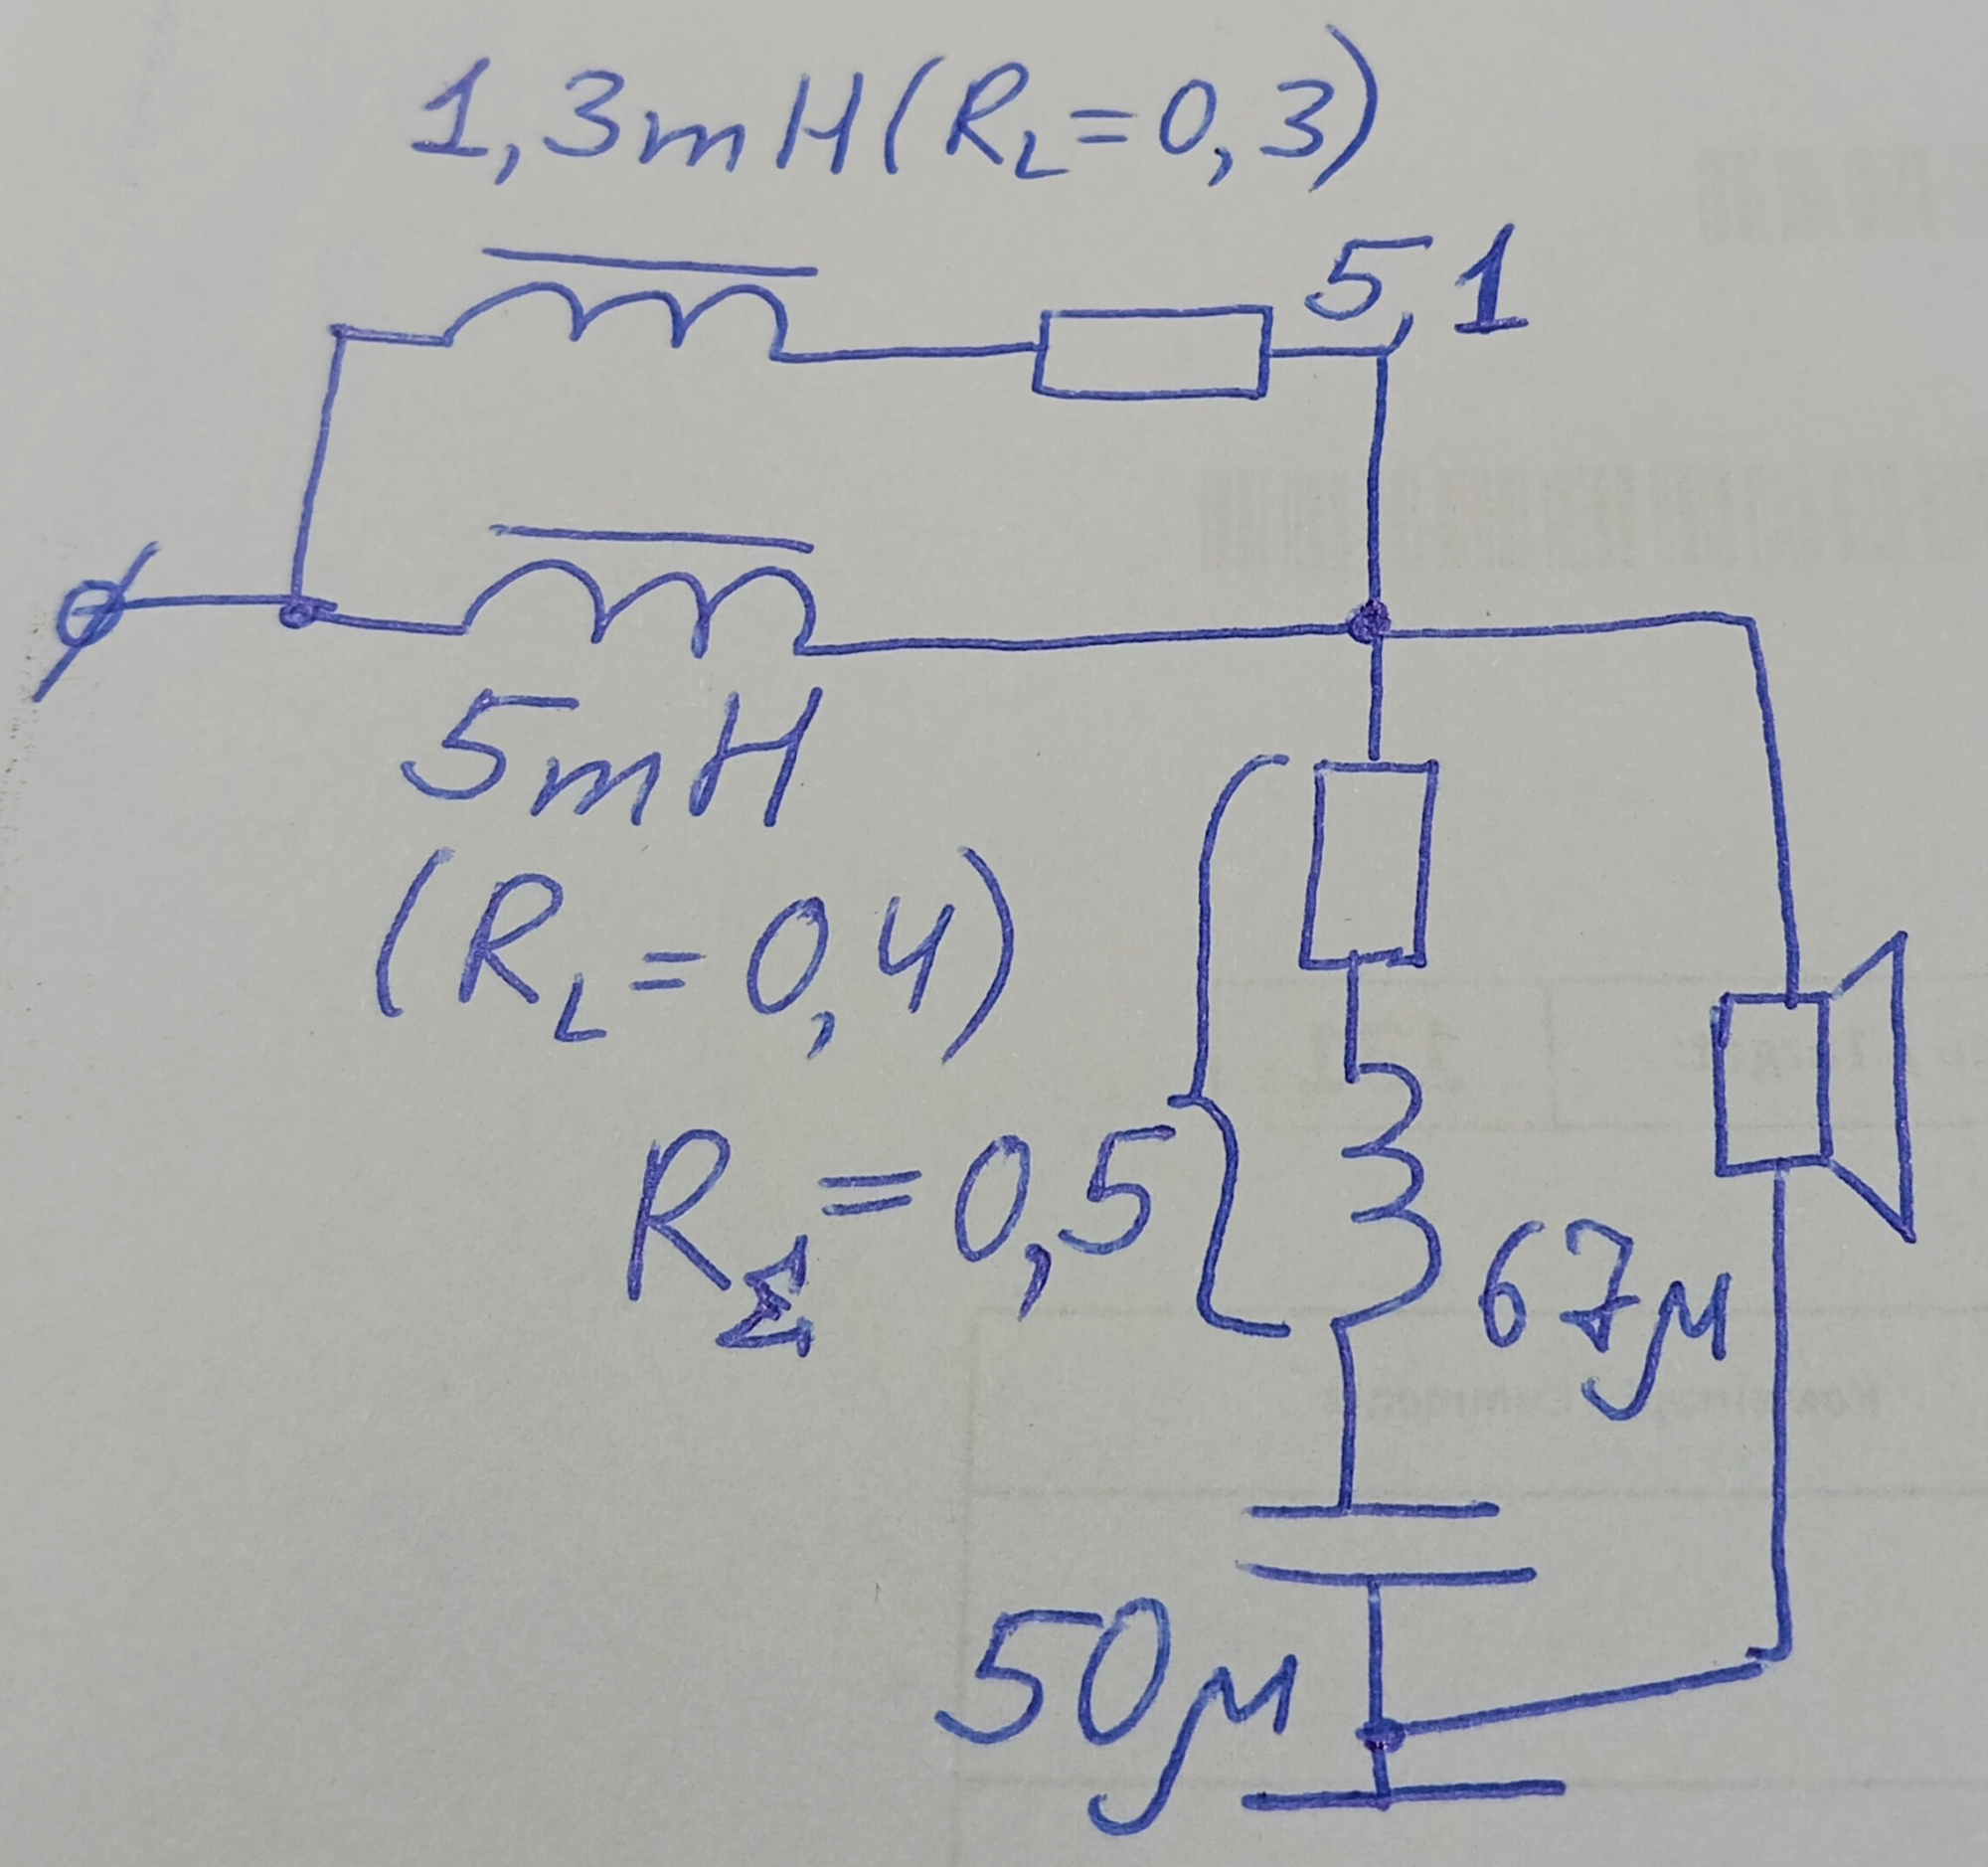 1,3mH(R_L=0,3)
5,1
5mH
(R_L=0,4)
R_Σ=0,5
67μ
50μ